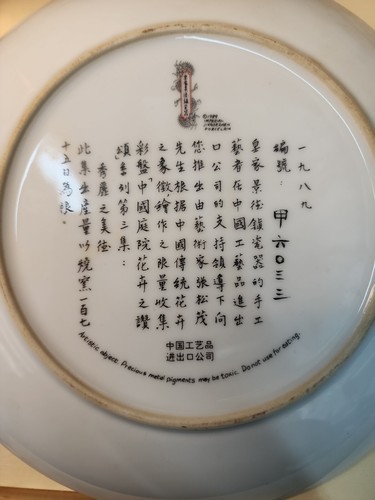 ©1989
IMPERIAL
JINGDEZHEN
PORCELAIN
一九八九
編號： 甲六〇三三
皇家景德鎮瓷器的手工
藝者在中國工藝品進出
口公司的支持領導下向
您推出由藝術家張松茂
先生根据中國傳統花卉
之象徵，繪作之限量收集
彩盤“中國庭院花卉之讚
頌”系列第三集：
秀麗之美德
此集出產量以燒窯一百七
十五日為限。
中国工艺品
进出口公司
Artistic object. Precious metal pigments may be toxic. Do not use for eating.